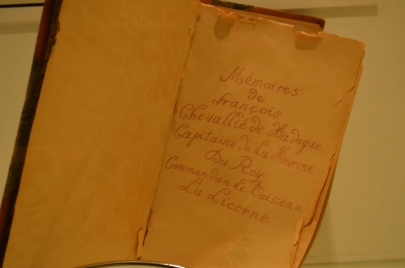 Mémoires
de
françois
Chevallié de Hadoque
Capitaine de La Marine
Du Roy
Commandan de Vaisseau
La Licorne